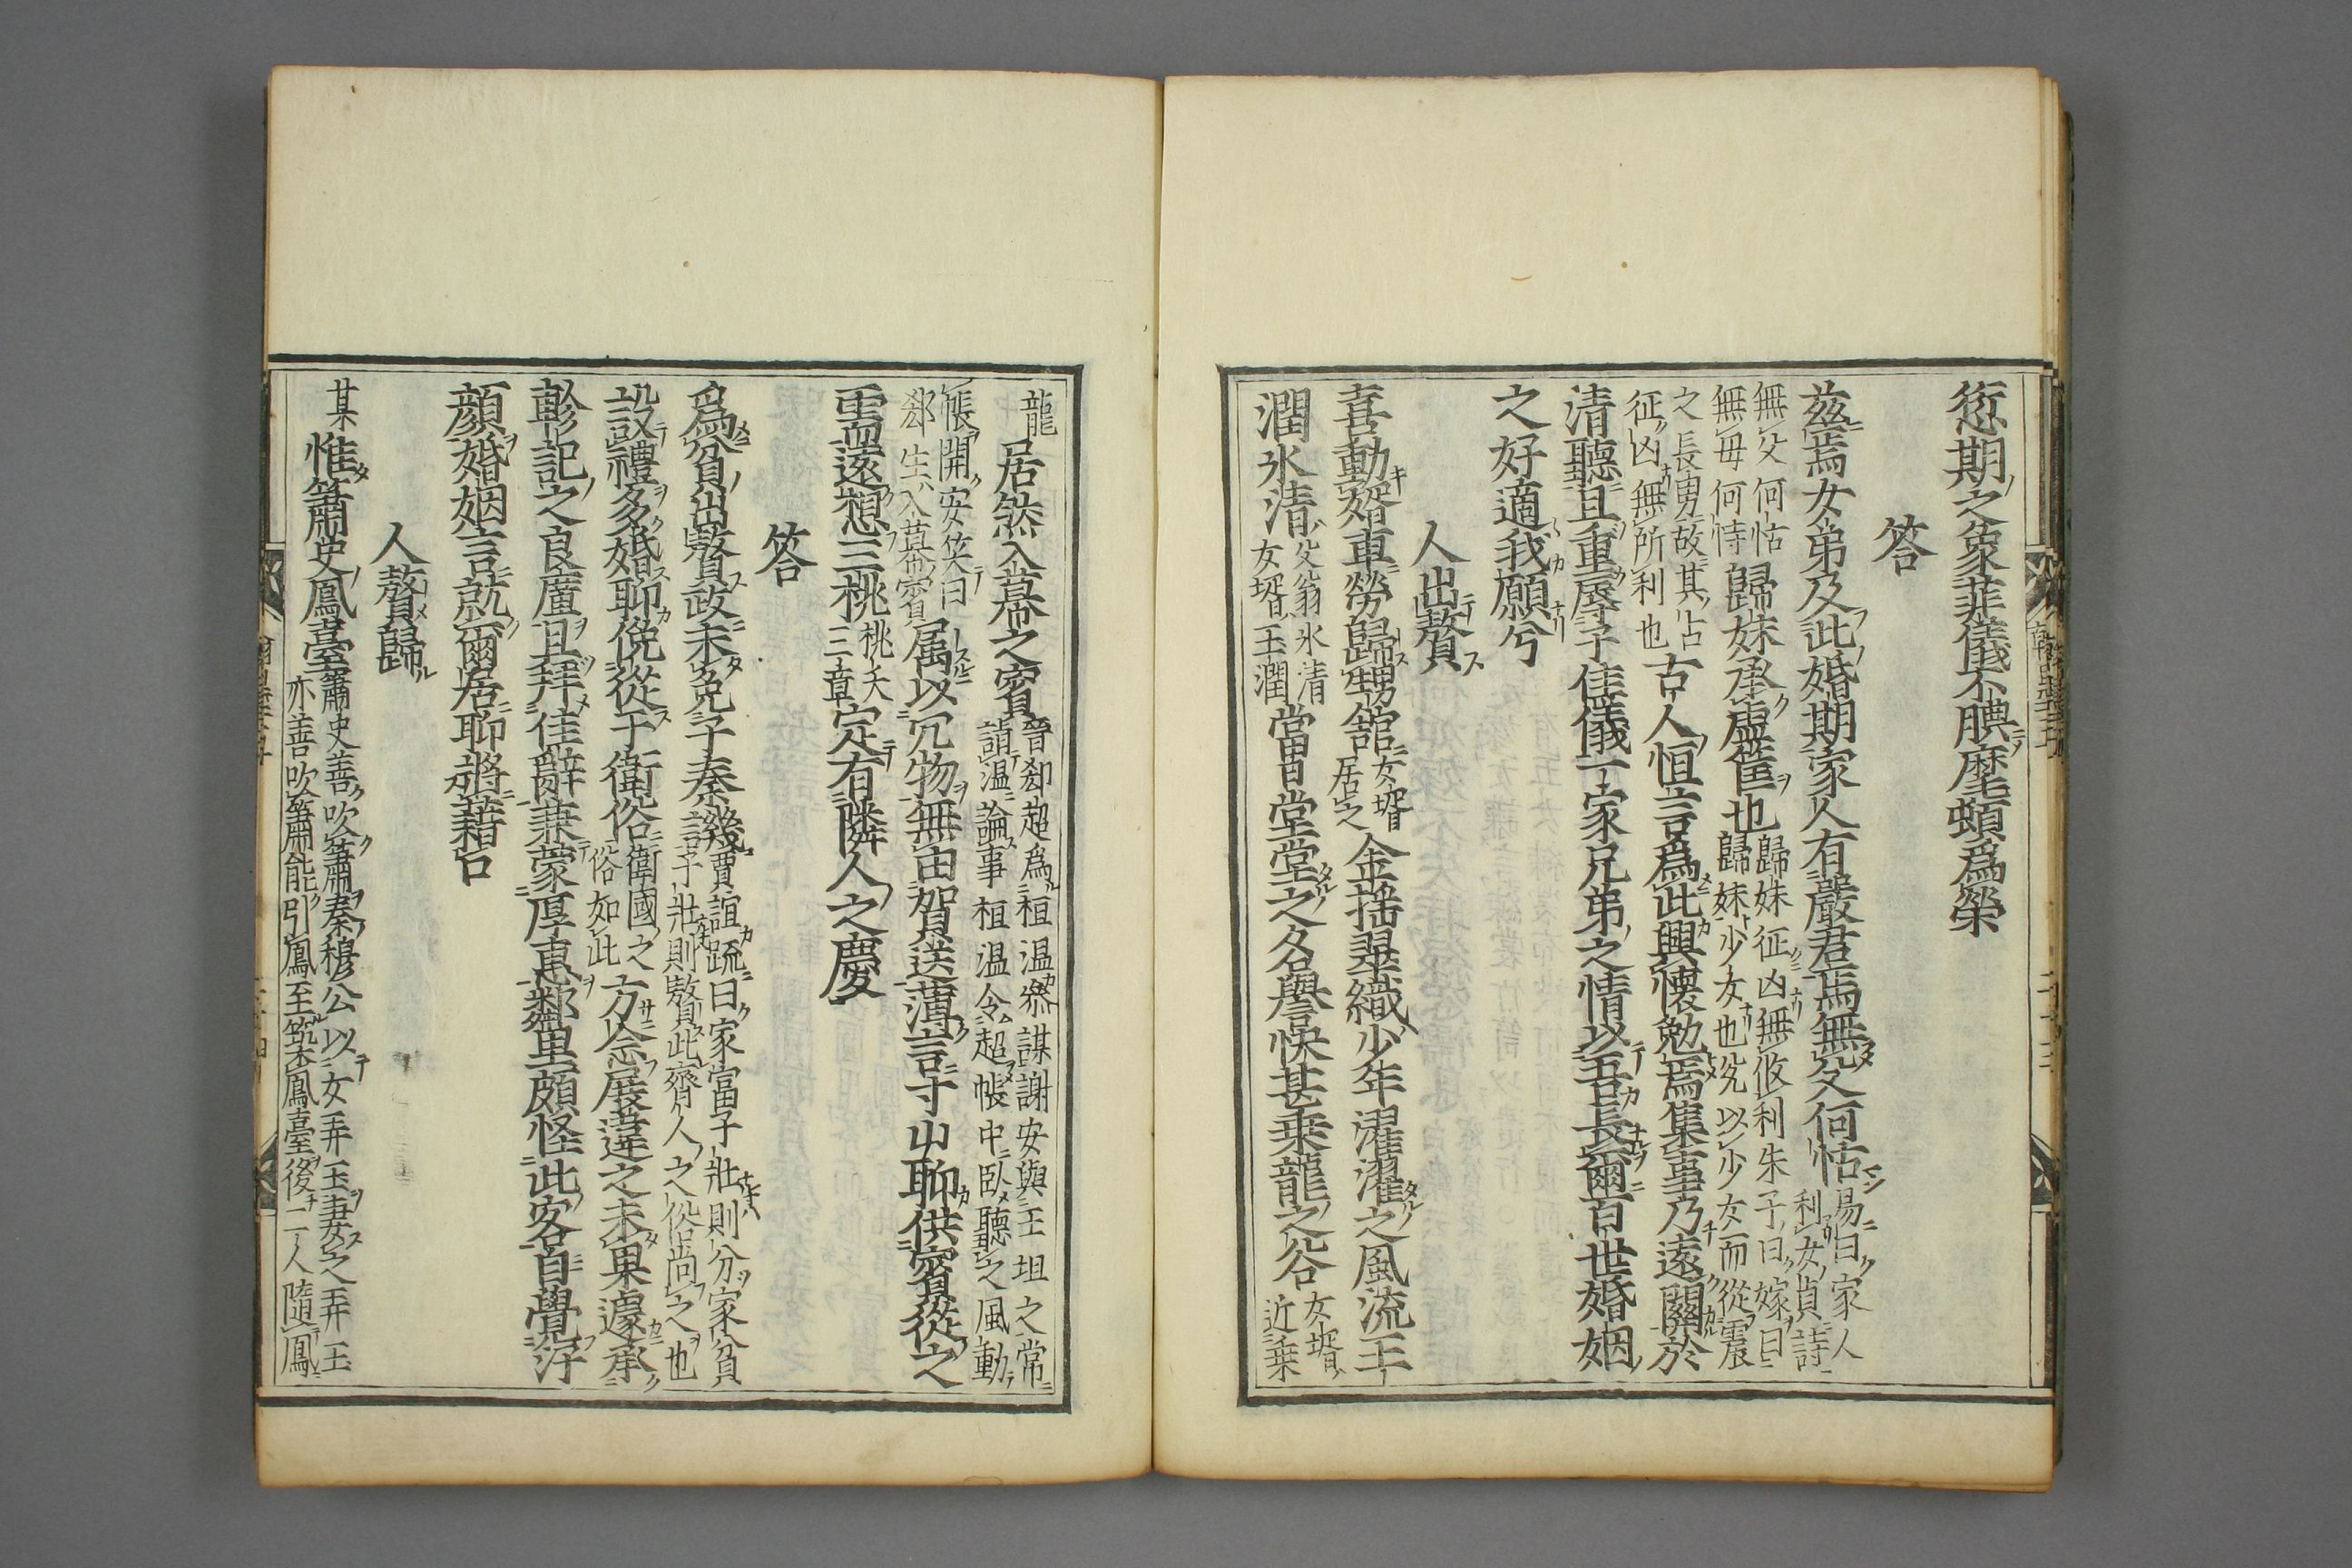 愆期之象菲儀不腆麾頓爲榮
答
茲焉女弟及此婚期家人有嚴君焉無父何怙易曰家人利女貞詩
無父何怙無母何恃歸妹承虛筐也歸妹征凶無攸利朱子曰嫁曰歸妹少女也兊以少女而從震
之長男故其占征凶無所利也古人恒言爲此興懷勉焉集事乃遠關於
清聽且重辱子佳儀一家兄弟之情以吾長爾百世婚姻
之好適我願兮
人出贅
喜動壻車勞歸甥舘女壻居之金搖翠織少年濯濯之風流玉
潤氷清父翁氷清女壻玉潤當甾堂堂之名譽快甚乗龍之谷女壻近乗
龍居然入幕之賓晉郄超爲桓温叅謀謝安與王坦之常詣温論事桓温令超帳中臥聽之風動
帳開安笑曰郄生入幕賓属以冗物無由賀送薄言寸屮聊供賓從之
需遥想三桃桃夭三章定有隣人之慶
答
爲貧出贅政未免子秦譏賈誼䟽曰家富子壯則分家貧子壯則贅此齊人之俗尚之也
設禮多婚聊俛從于衛俗衛國之俗如此方念展謹之未果遽承
軫記之良厪且拜佳辭兼蒙厚惠鄰里頗怪此客自覺浮
顔婚姻言就爾居聊將藉口
人贅歸
某惟簫史鳳臺簫史善吹簫秦穆公以女弄玉妻之弄玉亦善吹簫能引鳳至築鳳臺後二人隨鳳